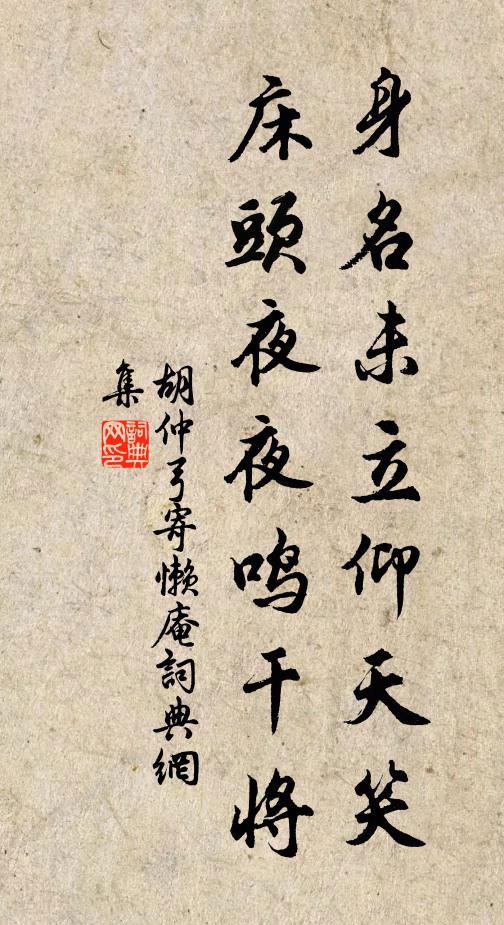 身名未立仰天笑
床頭夜夜鳴干將
胡仲弓寄懒庵詞典網
集
詞典网印